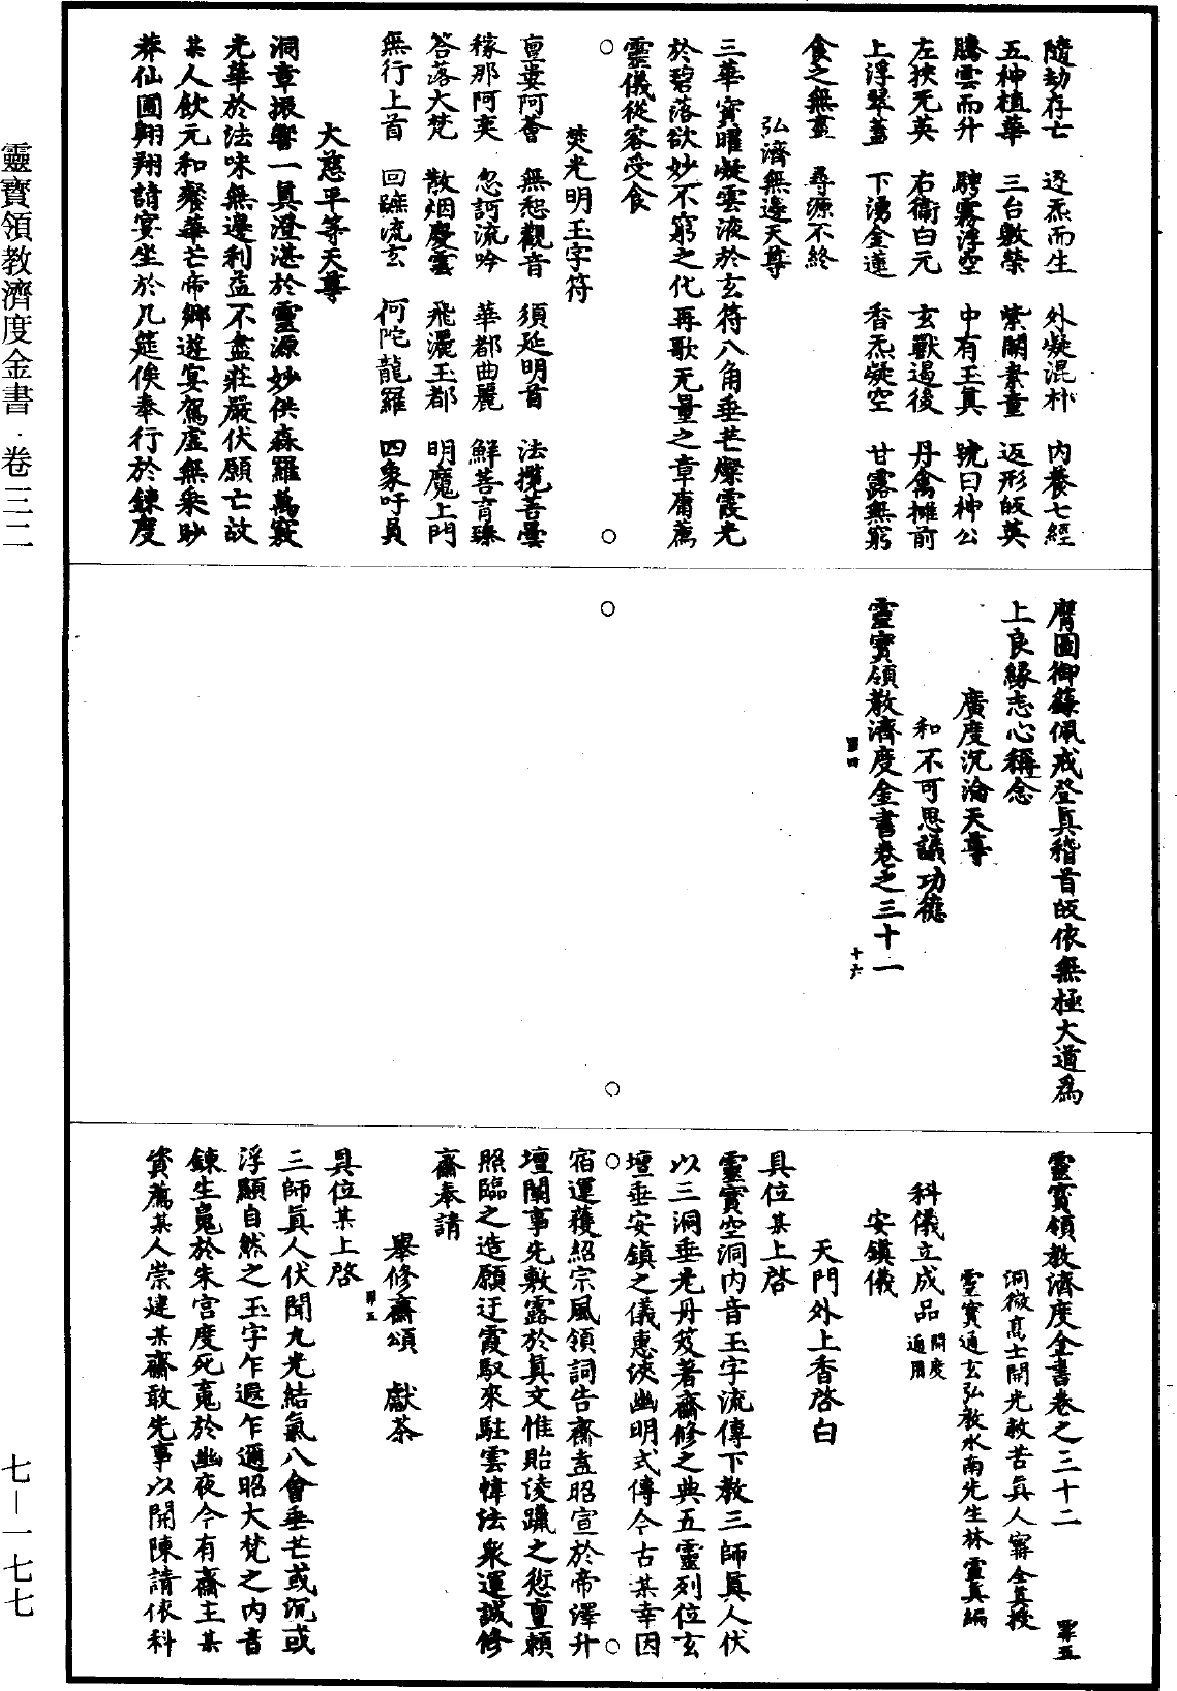 隨劫存亡　逐炁而生　外凝混朴　內養七經
五种植華　三台敷榮　紫闕素童　返形皈英
騰雲而升　騁霧浮空　中有玉真　號曰神公
左挾无英　右衛白元　玄獸遏後　丹禽攤前
上浮翠蓋　下湧金蓮　香炁凝空　甘露無窮
食之無盡　尋源不終
弘濟無邊天尊
三華寶曜凝雲液於玄符八角垂芒燦霞光
於碧落欲妙不窮之化再歌无量之章庸薦
靈儀從容受食
焚光明玉字符
亶婁阿薈　無惒觀音　須延明首　法攬菩曇
稼那阿奕　忽訶流吟　華都曲麗　鮮菩育臻
答落大梵　散烟慶雲　飛灑玉都　明魔上門
無行上首　回蹠流玄　何陀龍羅　四象吁員
大慈平等天尊
洞章振響一真澄湛於靈源妙供森羅萬竅
光華於法味無邊利益不盡莊嚴伏願亡故
某人飲元和餐華芒帝鄉遂宴駕虛無乘眇
莽仙圃翱翔請宴坐於几筵俟奉行於鍊度
膺圖御籙佩戒登真稽首皈依無極大道爲
上良緣志心稱念
廣度沉淪天尊
和不可思議功德
靈寶領教濟度金書卷之三十一
罪四　十六
靈寶領教濟度金書卷之三十二　罪五
洞微高士開光救苦真人甯全真授
靈寶通玄弘教水南先生林靈真編
科儀立成品開度通用
安鎮儀
天門外上香啓白
具位某上啓
靈寶空洞內音玉字流傳下教三師真人伏
以三洞垂光丹笈著齋修之典五靈列位玄
壇垂安鎮之儀惠浹幽明式傳今古某幸因
宿運獲紹宗風領詞告齋盍昭宣於帝澤升
壇闡事先敷露於真文惟貽淩躐之愆亶賴
照臨之造願迂霞馭來駐雲幃法衆運誠修
齋奉請
舉修齋頌　獻茶
罪五
具位某上啓
三師眞人伏聞九光結氣八會垂芒或沉或
浮顯自然之玉字乍遐乍邇昭大梵之內音
鍊生嵬於朱宮度死嵬於幽夜今有齋主某
資薦某人崇建某齋敢先事以開陳請依科
靈寶領教濟度金書·卷三二
七—一七七